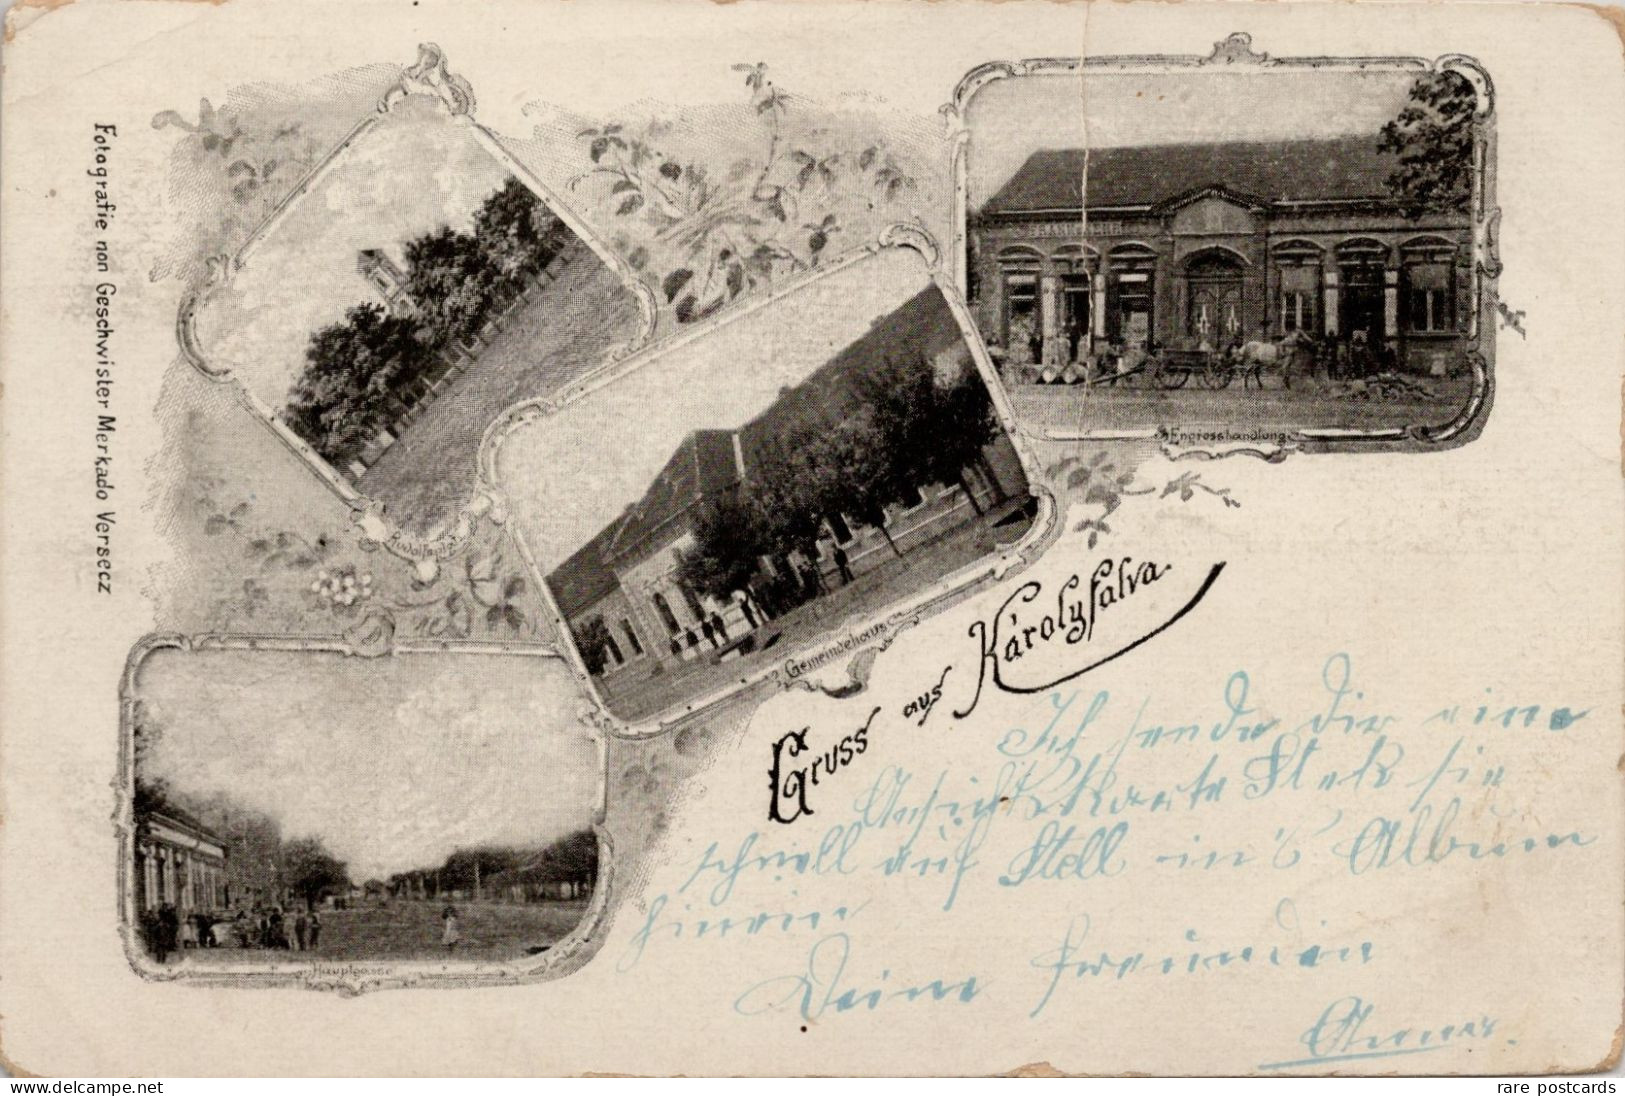 Fotografie non Geschwister Merkado Versecz
Rudolfsplatz
Engrosshandlung
Gemeindehaus
Hauptgasse
Gruss aus Károlyfalva
Ich sende dir eine
Ansichtskarte Stek sie
schnell auf Stell in's Album
hinein
Deine Freundin
Anna.
delcampe.net
rare postcards